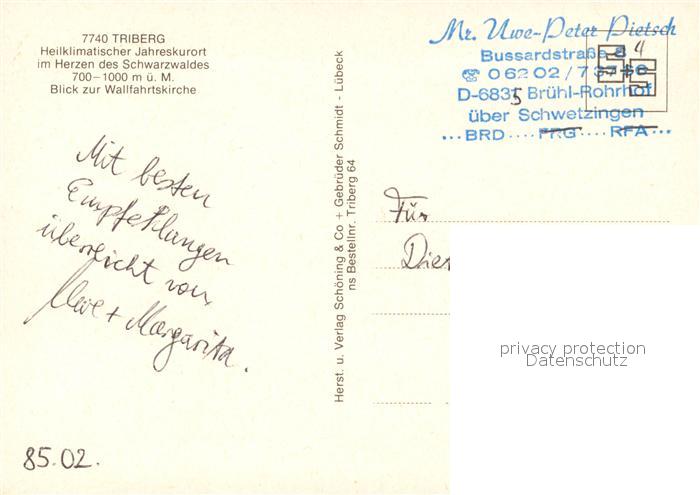 7740 TRIBERG
Heilklimatischer Jahreskurort
im Herzen des Schwarzwaldes
700–1000 m ü. M.
Blick zur Wallfahrtskirche
Mr. Uwe-Peter Pietsch
Bussardstraße 8 4
☎ 06202/
D-6835 Brühl-Rohrhof
über Schwetzingen
...BRD....FRG....RFA...
Mit besten
Empfehlungen
überreicht von
Uwe + Margarita.
85.02.
Herst. u. Verlag Schöning & Co + Gebrüder Schmidt - Lübeck
ns Bestellnr. Triberg 64
Für
privacy protection
Datenschutz